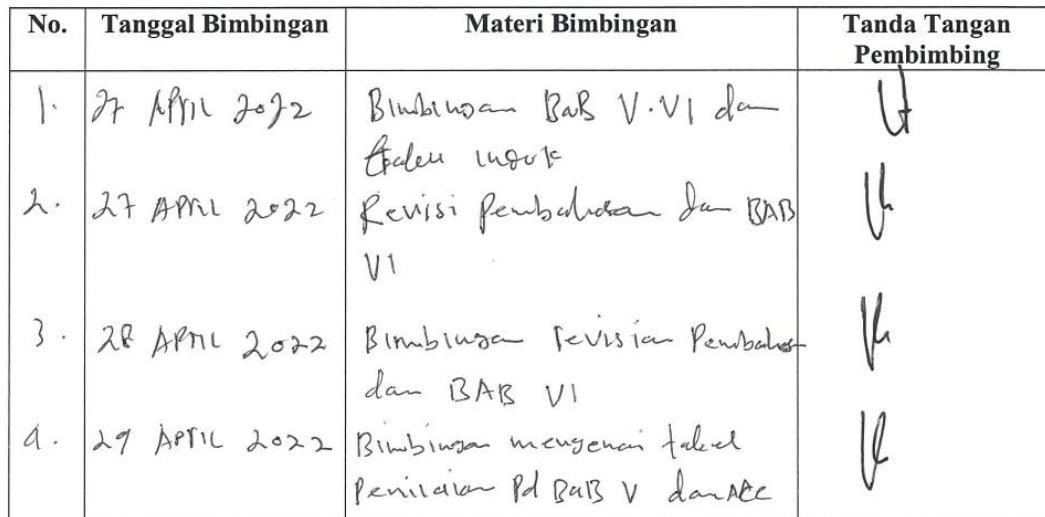 No. Tanggal Bimbingan Materi Bimbingan Tanda Tangan Pembimbing
1. 27 APRIL 2022 Bimbingan BaB V.VI dan
2. 27 APRIL 2022 Revisi Pembahasan dan BAB
VI
3. 28 APRIL 2022 Bimbingan revisian Pembahas
dan BAB VI
4. 29 APRIL 2022 Bimbingan mengenai tabel
Penilaian Pd BaB V dan ACC